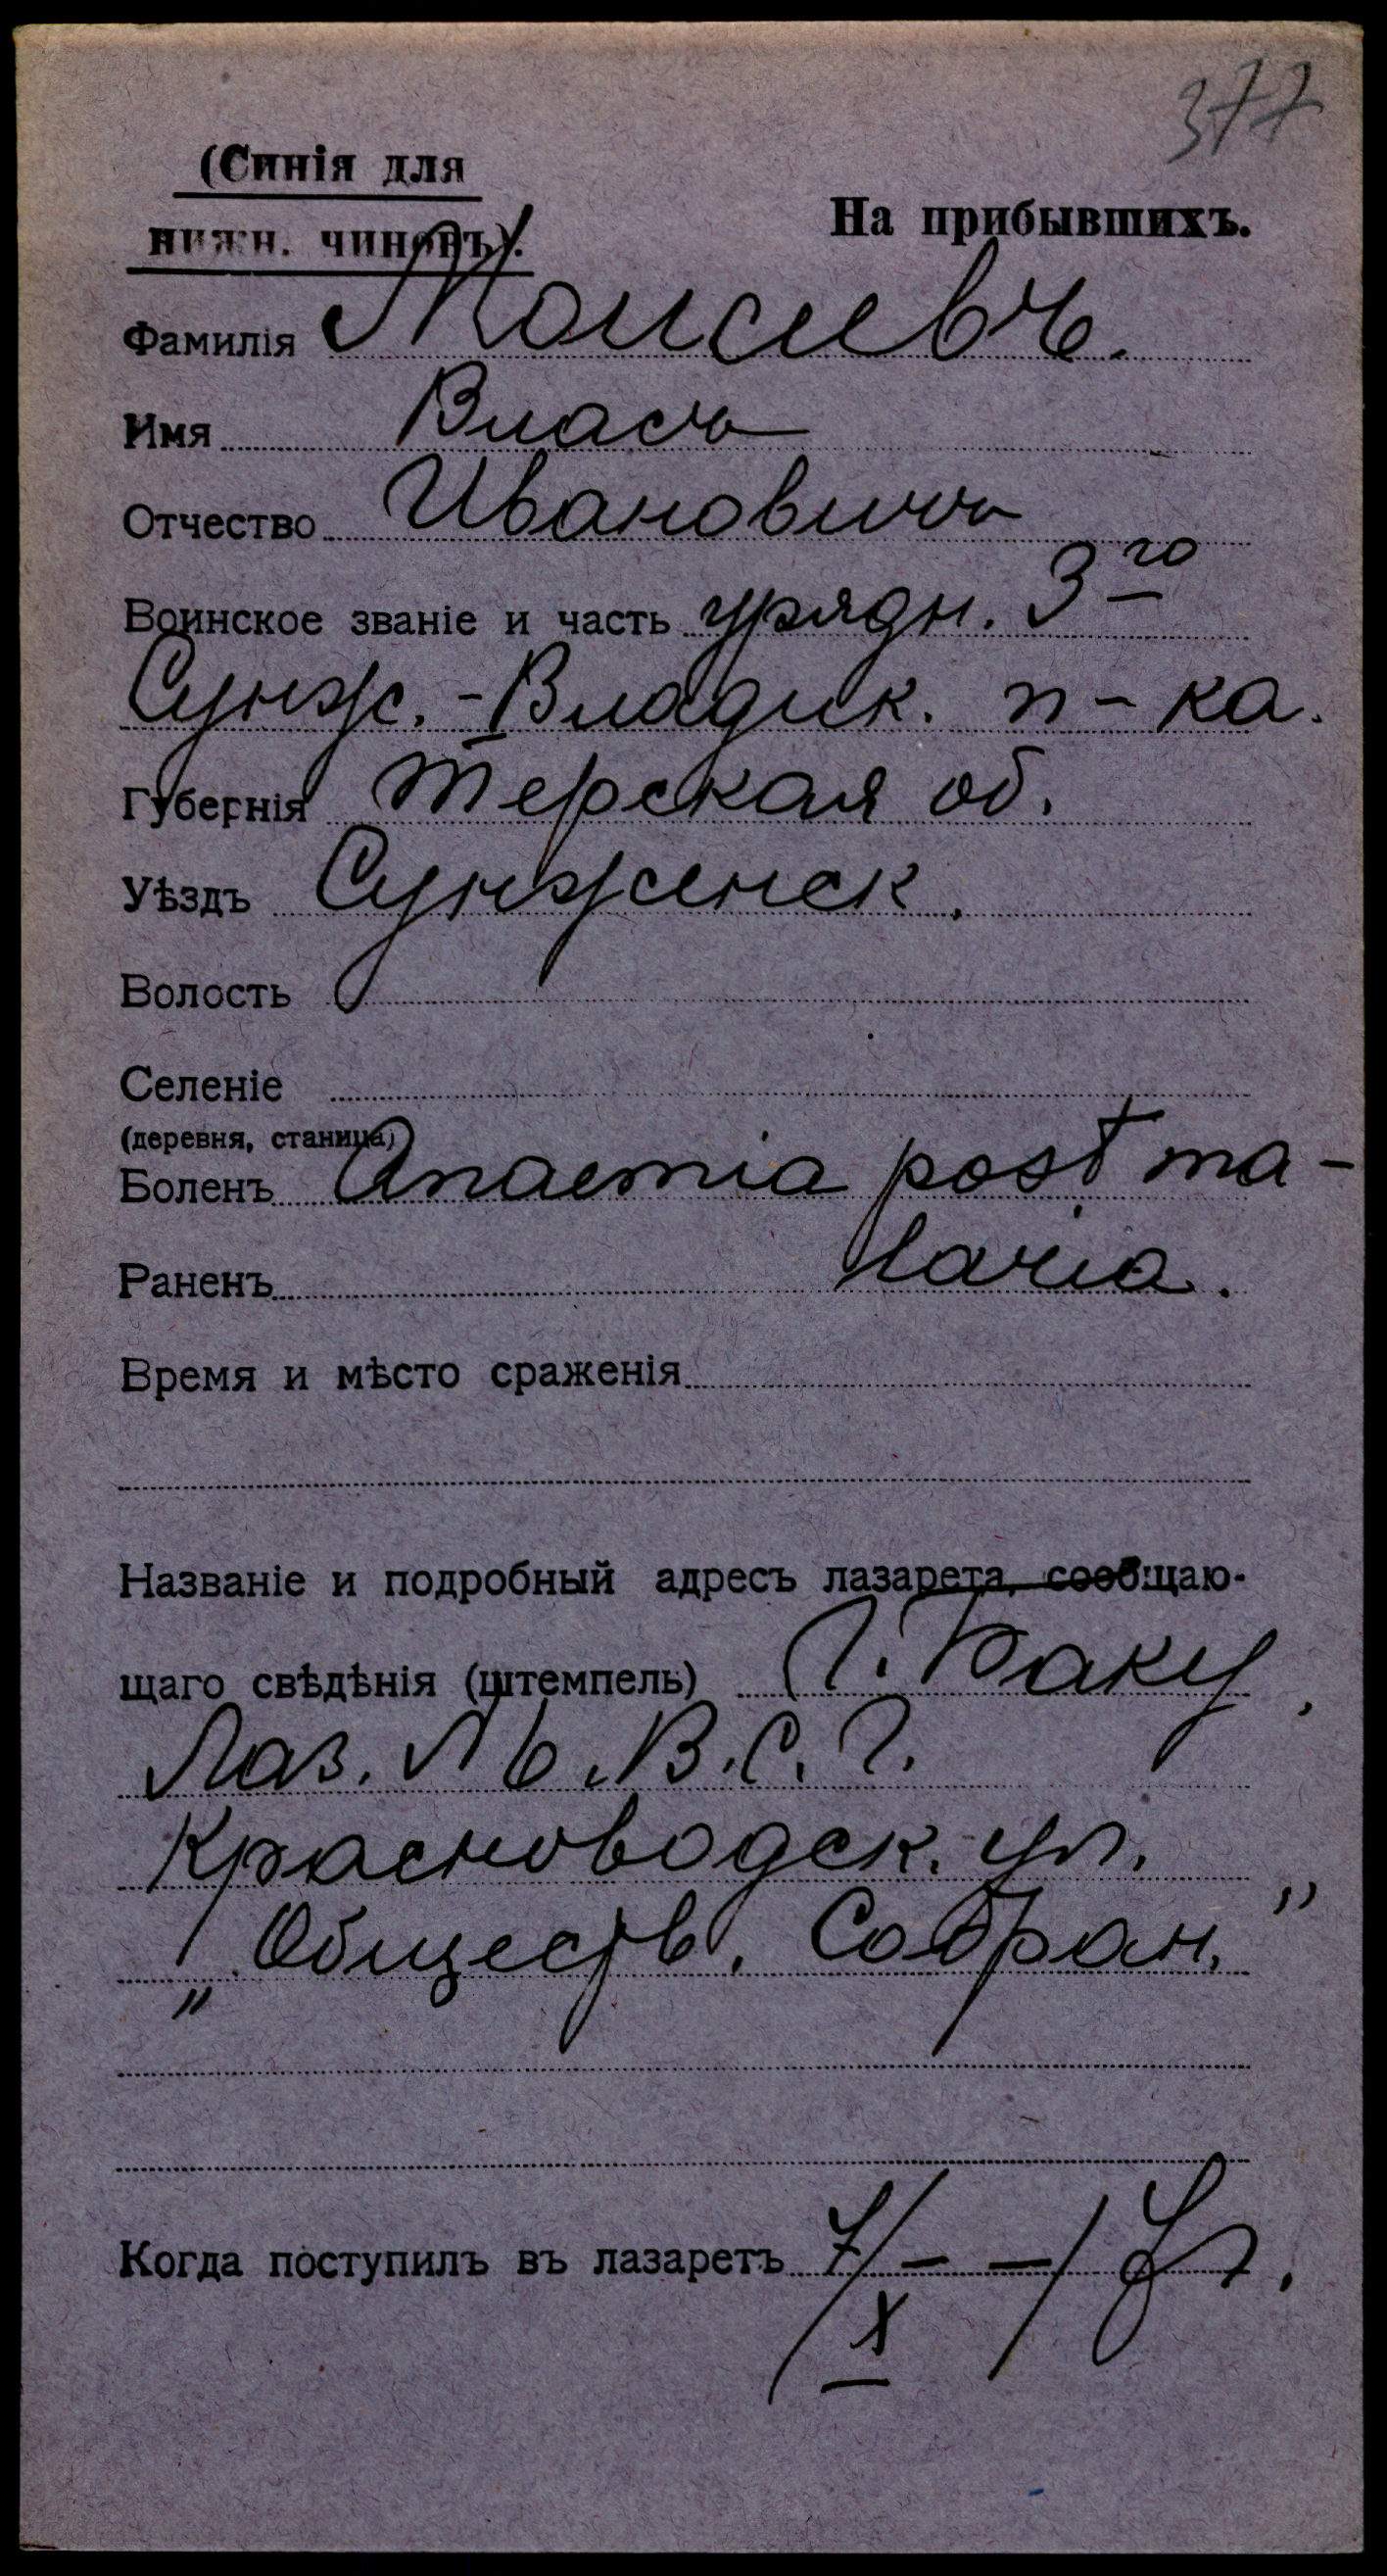 377
(Синія для
нижн. чиновъ).
На прибывшихъ.
Фамилія Моисеевъ.
Имя Власъ
Отчество Ивановичъ
Воинское званіе и часть урядн. 3го
Сунж.-Владик. п-ка.
Губернія Терская об.
Уѣздъ Сунженск.
Волость
Селеніе
(деревня, станица)
Боленъ Anaemia post ma-
Раненъ laria.
Время и мѣсто сраженія
Названіе и подробный адресъ лазарета, сообщаю-
щаго свѣдѣнія (штемпель) г. Баку,
Лаз. В.С.Г.
Красноводск. ул.
„Обществ. Собран."
Когда поступилъ въ лазаретъ 7/X